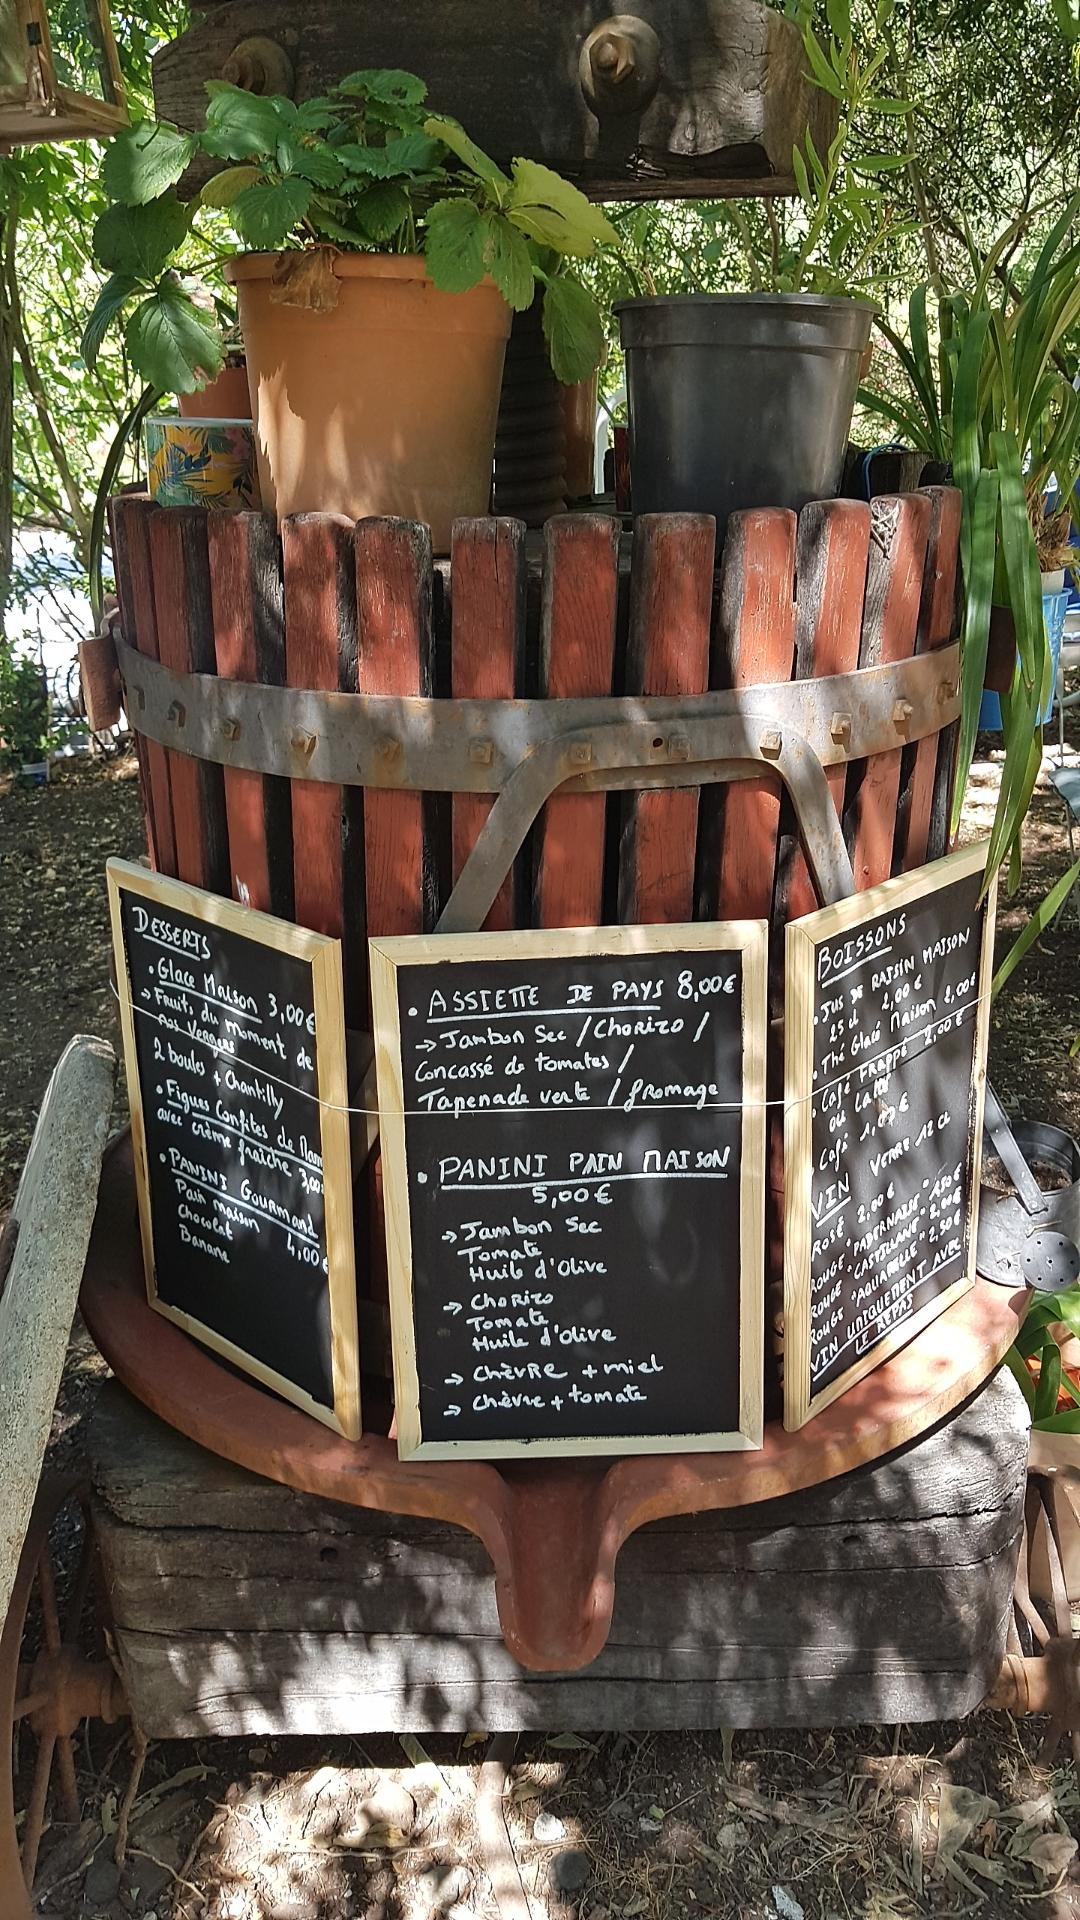 DESSERTS
• Glace Maison 3,00€
→ Fruits du moment de
nos vergers
2 boules + Chantilly
• Figues Confites de
avec crème fraîche 3,00
• PANINI Gourmand
Pain maison 4,00€
Chocolat
Banane
• ASSIETTE DE PAYS 8,00€
→ Jambon Sec / Chorizo /
Concassé de tomates /
Tapenade verte / fromage
• PANINI PAIN MAISON
5,00€
→ Jambon Sec
Tomate
Huile d'Olive
→ Chorizo
Tomate
Huile d'Olive
→ Chèvre + miel
→ Chèvre + tomate
BOISSONS
• JUS DE RAISIN MAISON
25 cl 2,00€
• Thé Glacé Maison 2,00€
• Café Frappé 2,00€
ou Latté
• Café 1,00€
VIN VERRE 12 CL
ROSÉ 2,00€
ROUGE "PABERNARIS" 1,50€
ROUGE "CASTILLANE" 2,00€
ROUGE "AQUARELLE" 2,50€
VIN UNIQUEMENT AVEC
LE REPAS